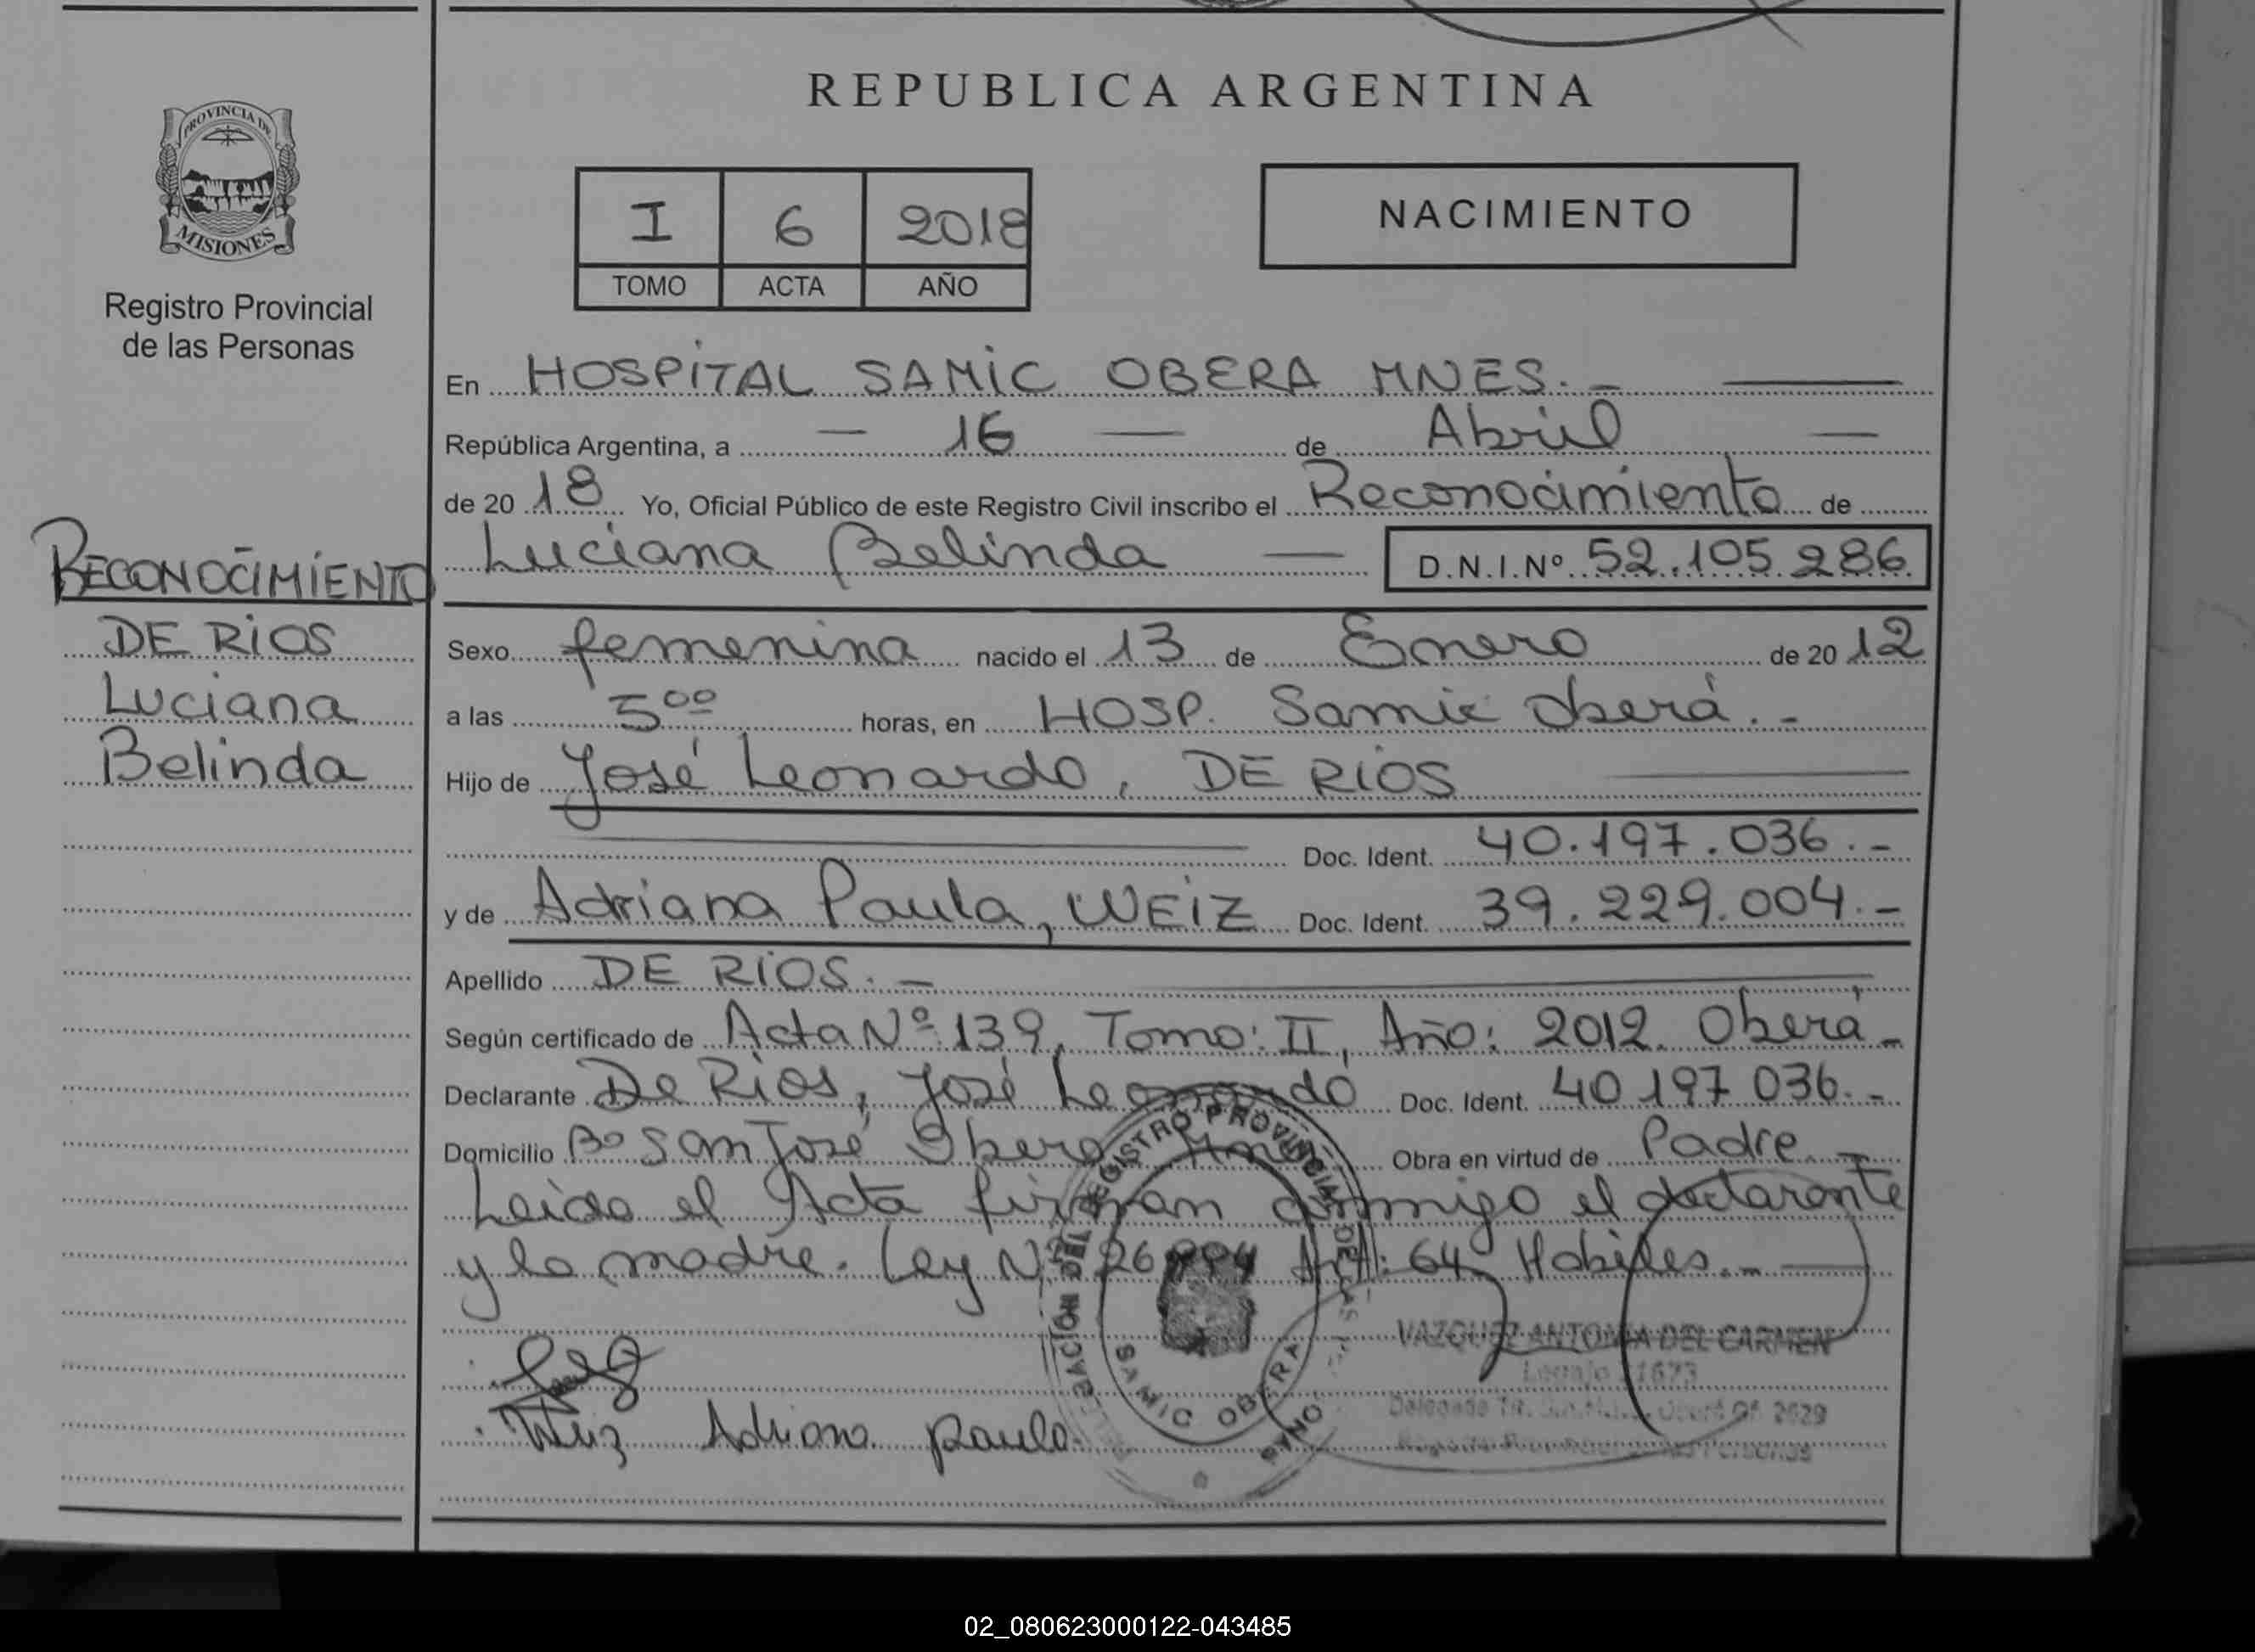 REPUBLICA ARGENTINA
PROVINCIA DE
MISIONES
Registro Provincial
de las Personas
I 6 2018
TOMO ACTA AÑO
NACIMIENTO
En HOSPITAL SAMIC OBERA MNES.-
República Argentina, a - 16 - de Abril -
de 20 18 Yo, Oficial Público de este Registro Civil inscribo el Reconocimiento de
Luciana Belinda - D.N.I.Nº 52.105.286
RECONOCIMIENTO
DE RIOS
Luciana
Belinda
Sexo femenina nacido el 13 de Enero de 20 12
a las 5ºº horas, en HOSP. Samic Oberá.-
Hijo de José Leonardo, DE RIOS
Doc. Ident. 40.197.036.-
y de Adriana Paula, WEIZ Doc. Ident. 39.229.004.-
Apellido DE RIOS.-
Según certificado de Acta Nº 139, Tomo: II, Año: 2012. Oberá-
Declarante De Rios, José Leonardo Doc. Ident. 40 197 036.-
Domicilio Bº San José Obera Mnes Obra en virtud de Padre.-
Leida el Acta firman conmigo el declarante
y la madre. Ley Nº 26994 Art: 64 Habiles.-
DELEGACIÓN DEL REGISTRO PROVINCIAL DE LAS PERSONAS
SAMIC OBERA
VAZQUEZ ANTONIA DEL CARMEN
Legajo 21673
Weiz Adriana paula
02_080623000122-043485